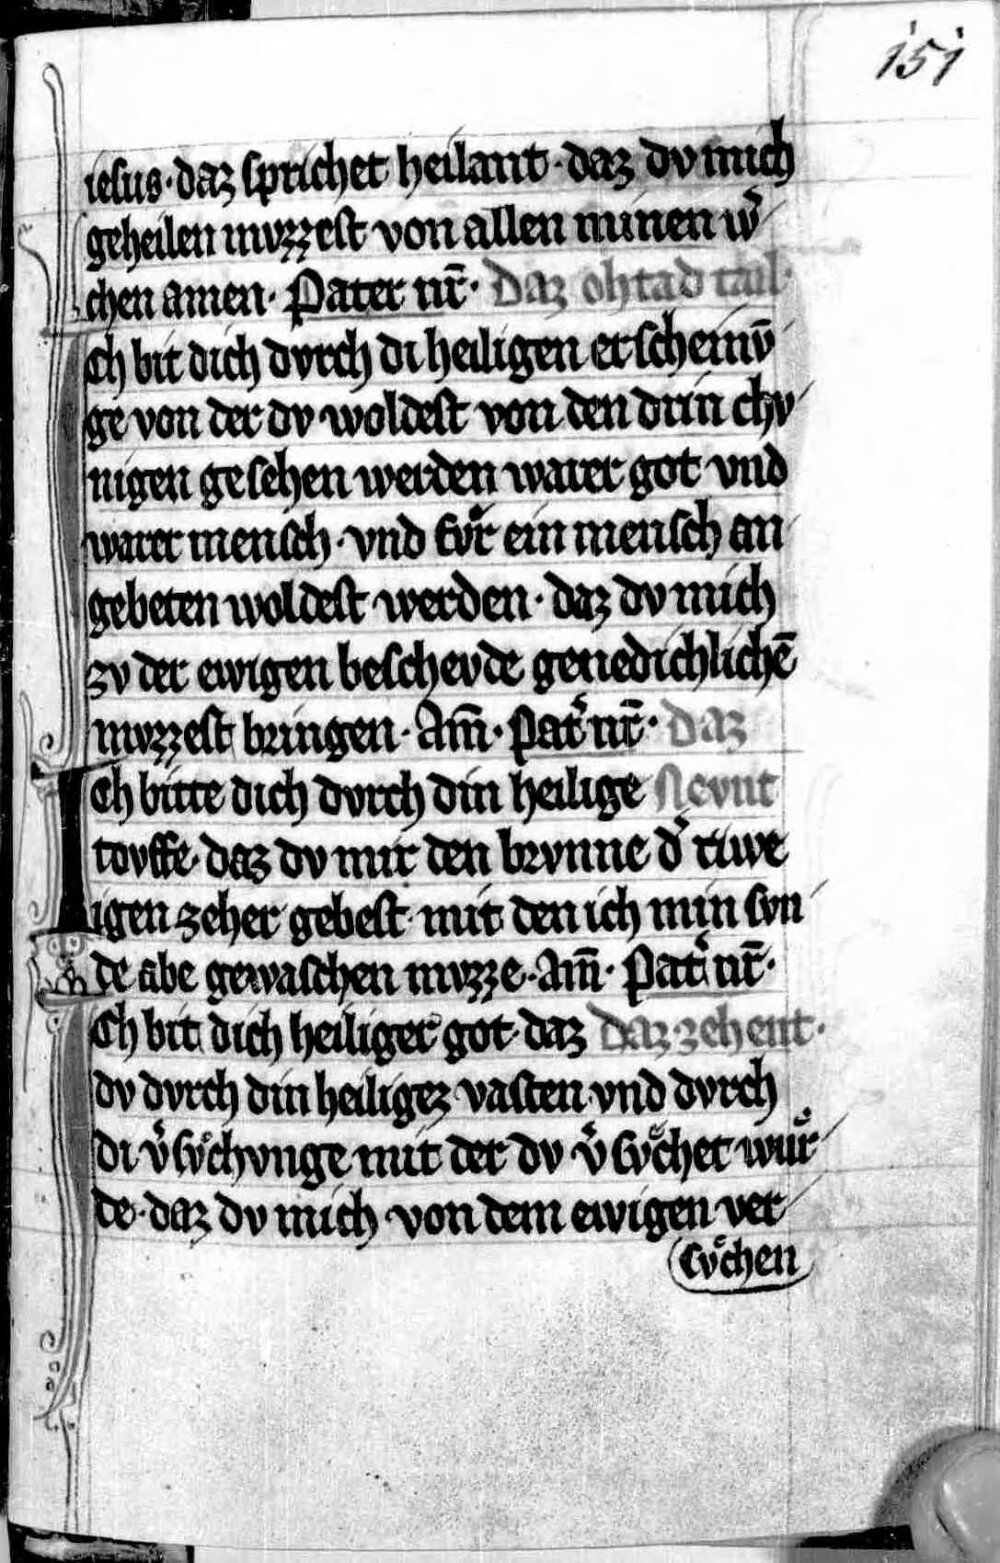 151
iesus · daz sprichet heilant · daz dv mich
geheilen mvzzest von allen minen w̉
chen amen · Pater nr̄ · Daz ohtad tail ·
Ich bit dich dvrch di heiligen erscheinv̄
ge von der dv woldest von den drin chv
nigen gesehen werden warer got vnd
warer mensch · vnd fvͤr ein mensch an
gebeten woldest werden · daz dv mich
zv der ewigen beschevde genedichlichē
mvzzest bringen · Am̄ · Pat̉ nr̄ · Daz
Ich bitte dich dvrch din heilige Nevnt
tovffe · daz dv mir den brvnne d̉ riwe
igen zeher gebest mit den ich min svn
de abe gewaschen mvzze · Am̄ · Pat̉ nr̄ ·
Ich bit dich heiliger got daz Daz zehent ·
dv dvrch din heiligez vasten vnd dvrch
di v̉svͦchvnge mit der dv v̉svͦchet wuͤr
de · daz dv mich von dem ewigen ver
svͦchen